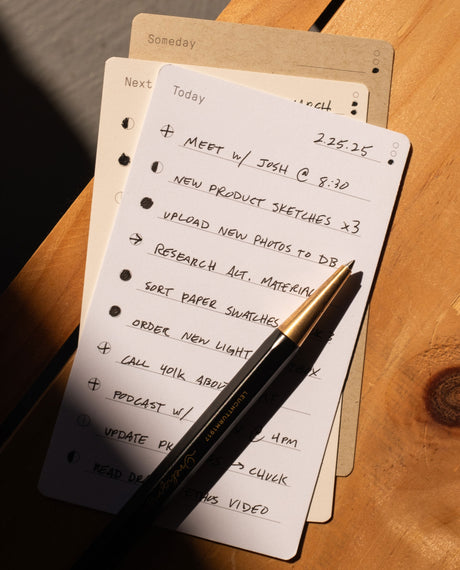 Someday
Next
MARCH
Today
2.25.25
MEET W/ JOSH @ 8:30
NEW PRODUCT SKETCHES x3
UPLOAD NEW PHOTOS TO DB
RESEARCH ALT. MATERIAL
SORT PAPER SWATCHES
ORDER NEW LIGHT
CALL 401K
PODCAST W/ @ 4PM
UPDATE → CHUCK
READ VIDEO
LEUCHTTURM1917